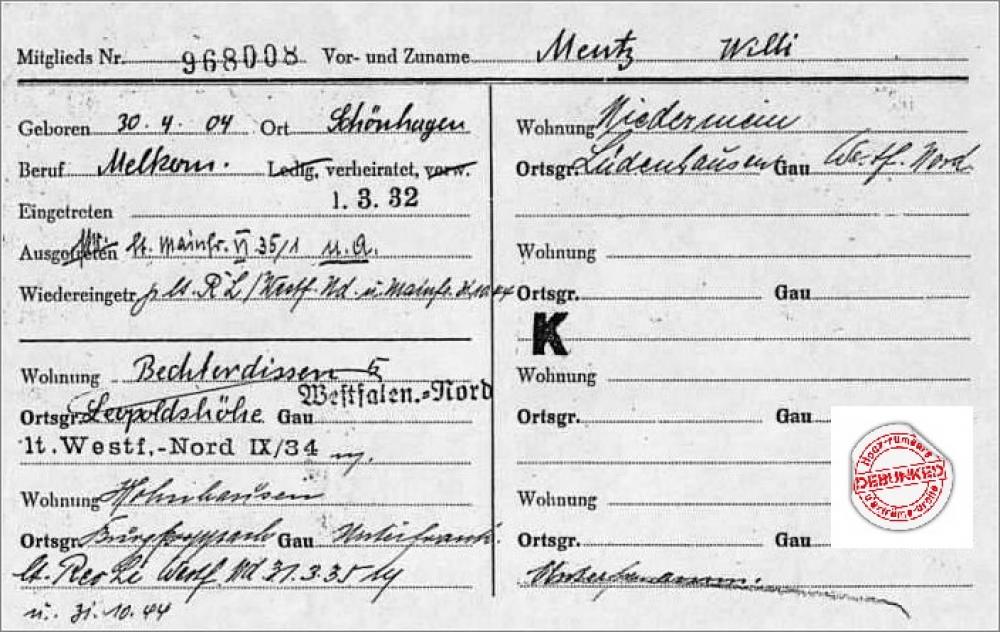 Mitglieds Nr. 968008 Vor- und Zuname Mentz Willi
Geboren 30.4.04 Ort Schönhagen
Beruf Melker Ledig, verheiratet, verw.
1.3.32
Eingetreten
Ausgetreten lt. Mainfr. VI 35/1 u.a.
Wiedereingetr. lt. RL/Westf. Nd u. Mainfr.
Wohnung Bechterdissen 5
Ortsgr. Leopoldshöhe Gau Westfalen.-Nord
lt. Westf.-Nord IX/34
Wohnung Hohnhausen
Ortsgr. Gau Unterfrank.
lt. Westf. Nd 31.3.35
u. 31.10.44
Wohnung Niedermein
Ortsgr. Lüdenhausen Gau Westf. Nord
Wohnung
Ortsgr. Gau
K
Wohnung
Ortsgr. Gau
Wohnung
Ortsgr. Gau
DEBUNKED